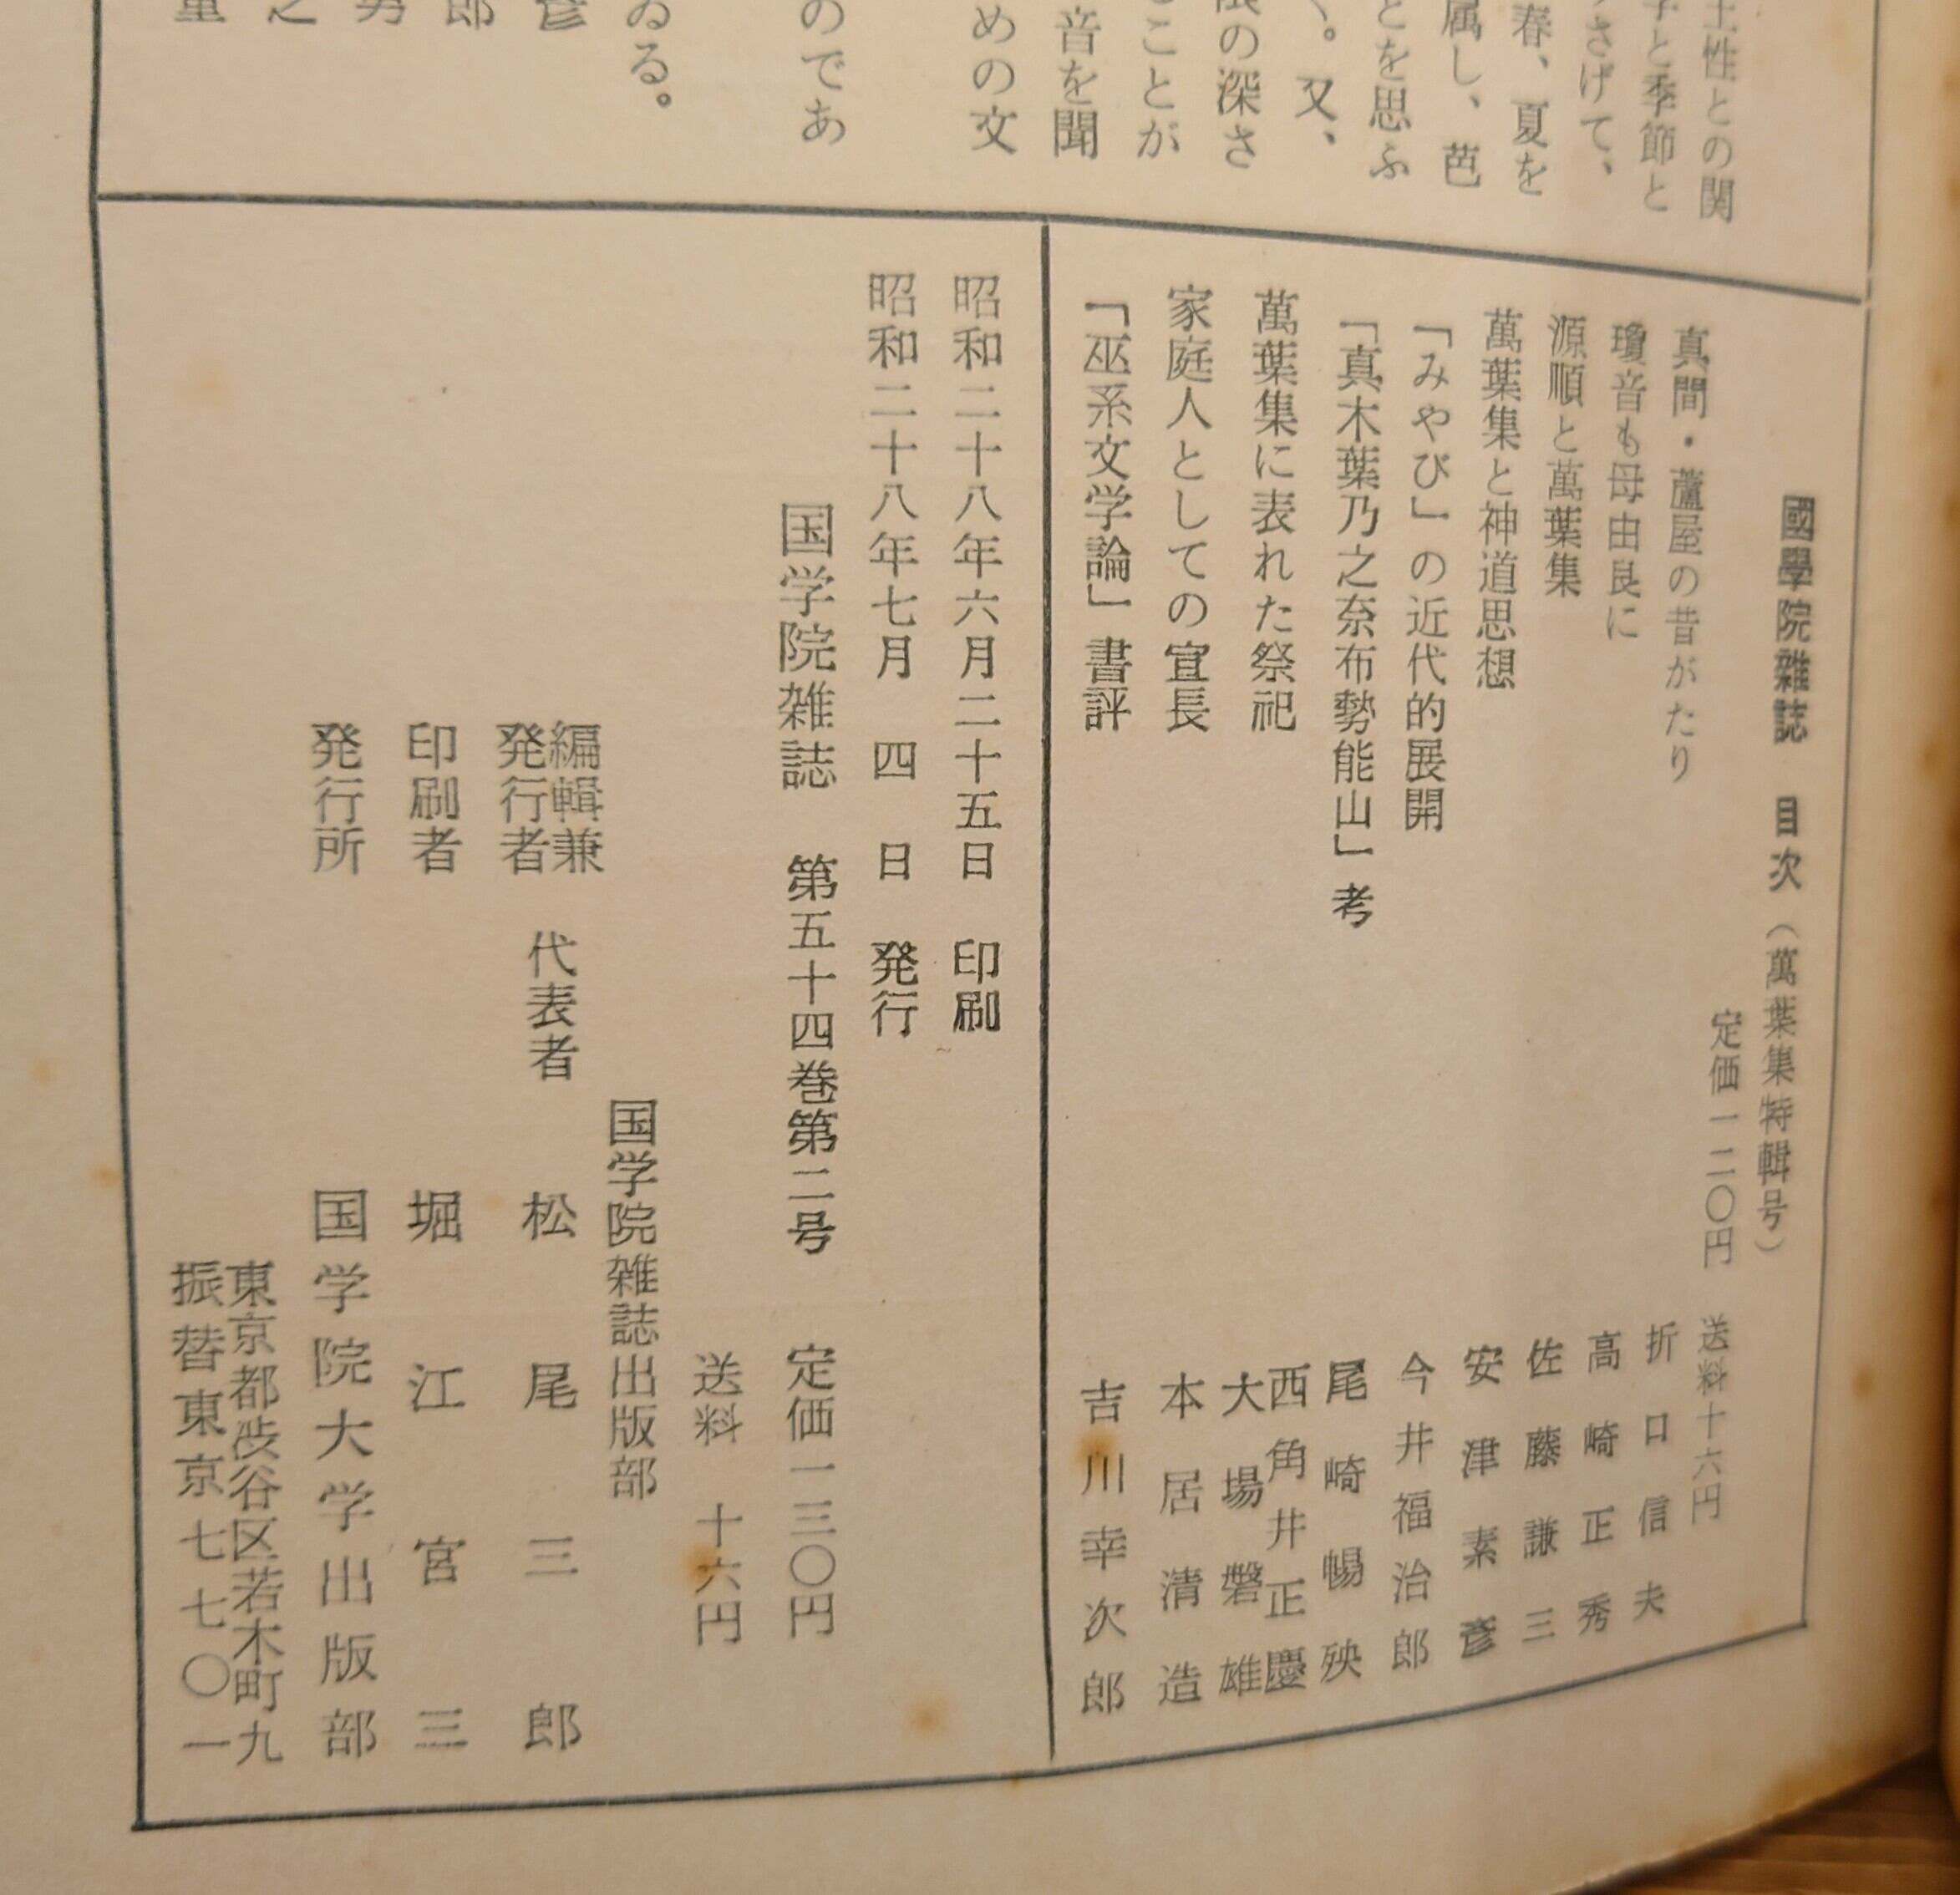 土性との関
字と季節と
さげて、
春、夏を
属し、芭
とを思ふ
く。又、
の深さ
ことが
音を聞
めの文
のであ
ゐる。
彦
郎
男
之
重
國學院雜誌 目次（萬葉集特輯号）
定価一二〇円 送料十六円
真間・蘆屋の昔がたり 折口信夫
瓊音も母由良に 高崎正秀
源順と萬葉集 佐藤謙三
萬葉集と神道思想 安津素彦
「みやび」の近代的展開 今井福治郎
「真木葉乃之奈布勢能山」考 尾崎暢殃
萬葉集に表れた祭祀 西角井正慶
大場磐雄
家庭人としての宣長 本居清造
「巫系文学論」書評 吉川幸次郎
昭和二十八年六月二十五日 印刷
昭和二十八年七月 四 日 発行
国学院雑誌 第五十四巻第二号 定価一三〇円
送料 十六円
国学院雑誌出版部
編輯兼
発行者 代表者 松尾三郎
印刷者 堀江宮三
発行所 国学院大学出版部
東京都渋谷区若木町九
振替東京七七〇一